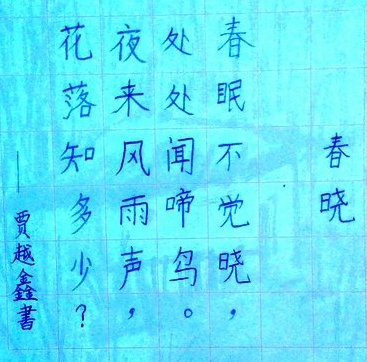 春晓
春眠不觉晓，
处处闻啼鸟。
夜来风雨声，
花落知多少？
——贾越鑫書